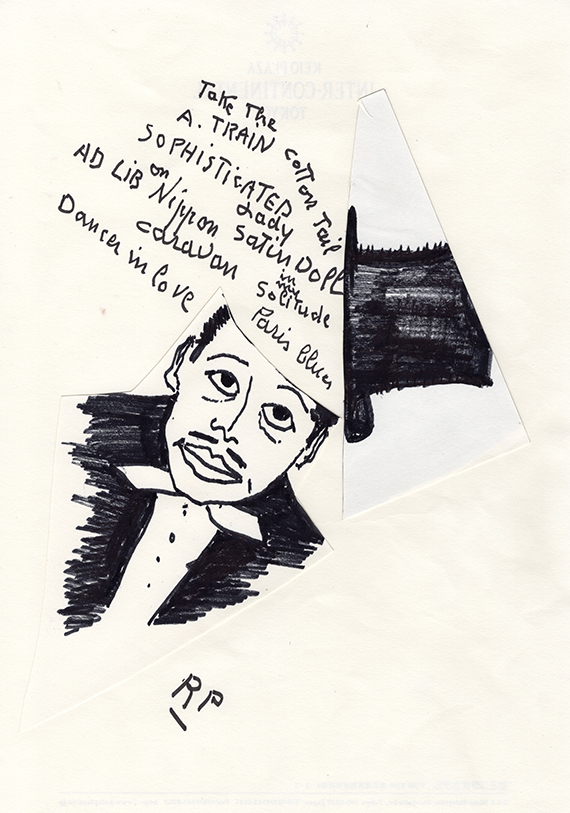 KEIO PLAZA
INTER-CONTINENTAL
TOKYO
Take The
A. TRAIN cotton Tail
SOPHISTICATED
Lady
AD LIB on Nippon Satin DOLL
caravan in my Solitude
Dancer in love
Paris blues
RP